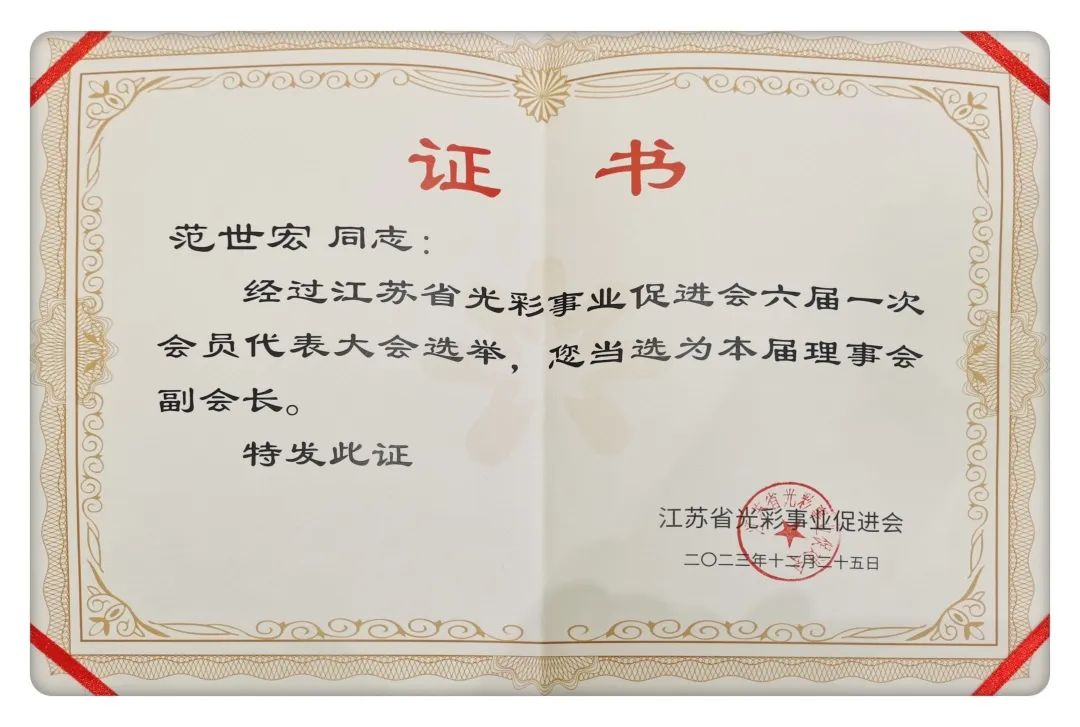 证 书
范世宏 同志：
经过江苏省光彩事业促进会六届一次
会员代表大会选举，您当选为本届理事会
副会长。
特发此证
江苏省光彩事业促进会
二〇二三年十二月二十五日